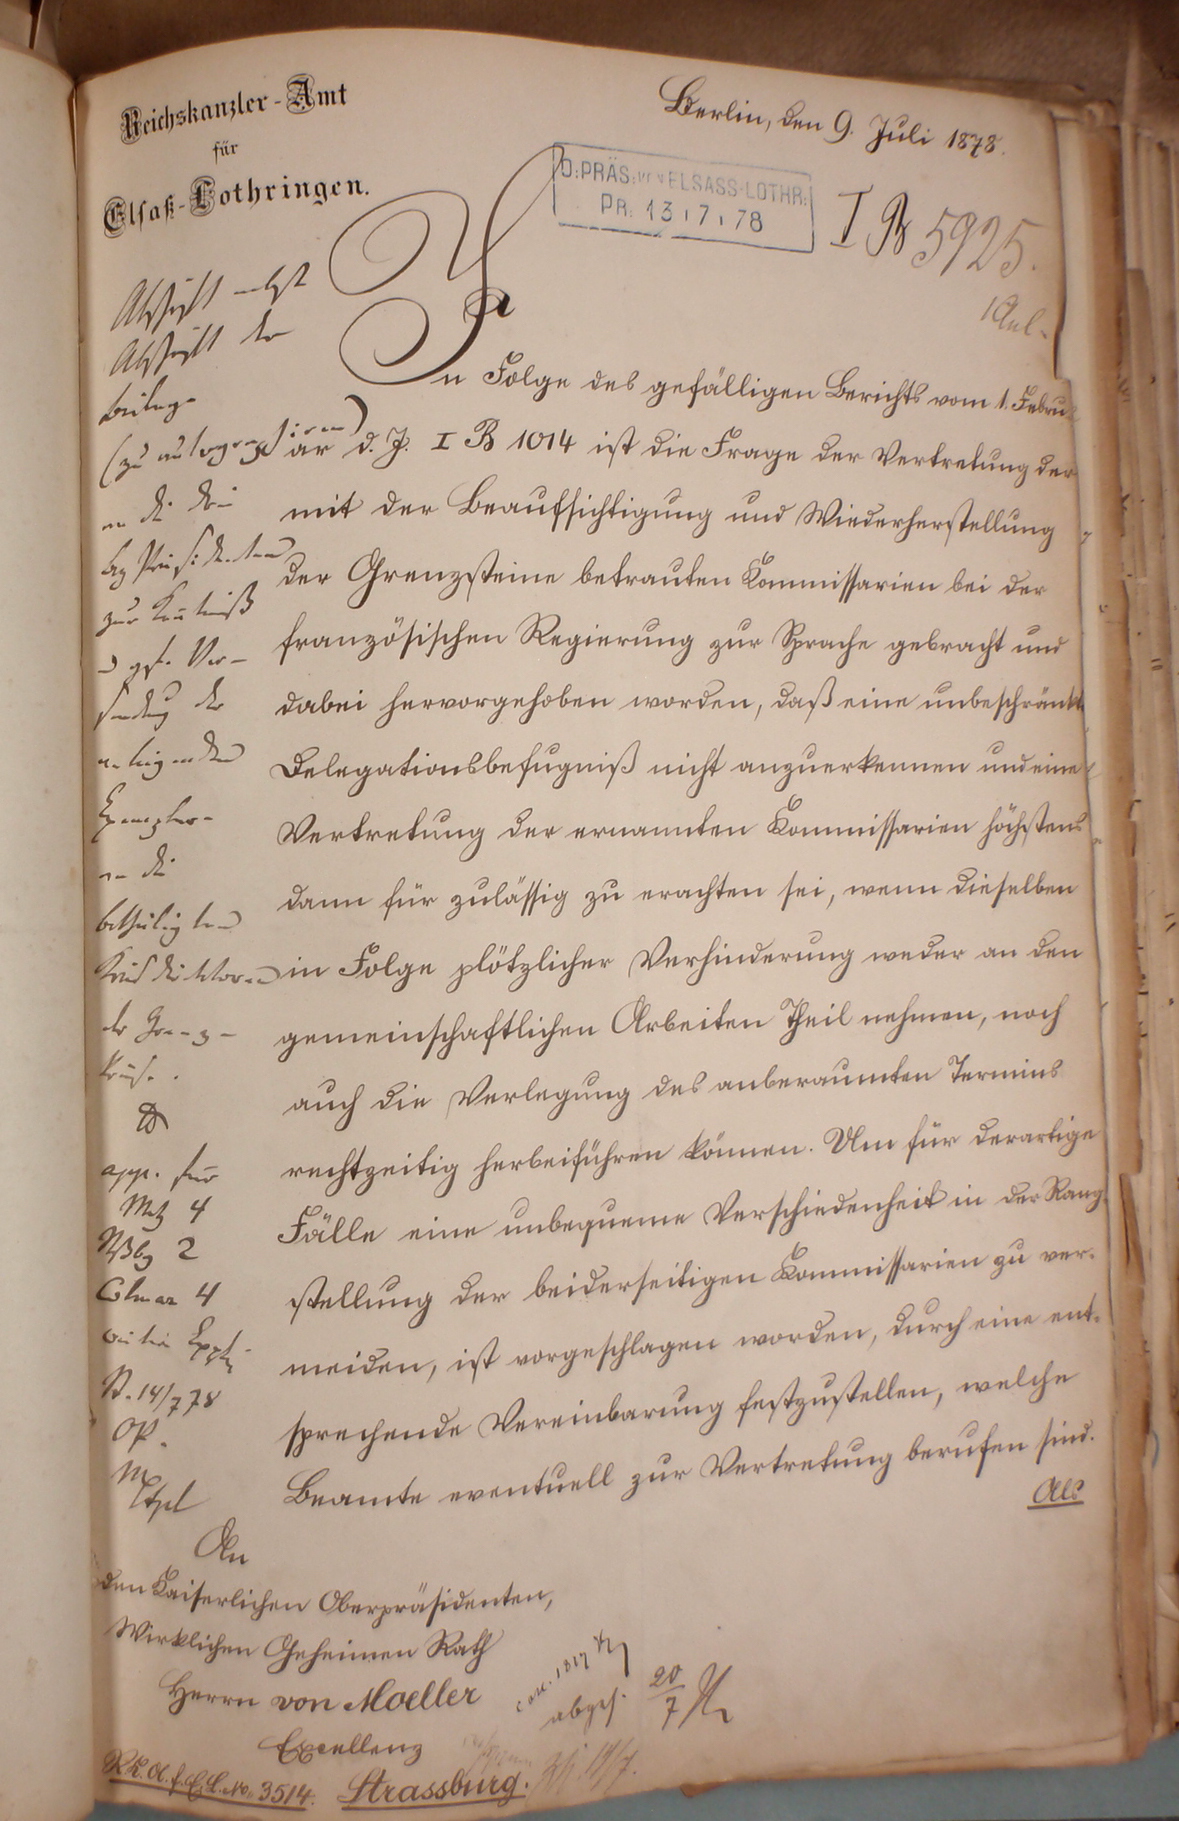 Reichskanzler-Amt
für
Elsaß-Lothringen.
Berlin, den 9. Juli 1878.
O: PRÄS: ELSASS-LOTHR:
PR: 13 7 78
I B 5925.
1 Anl.
Abschrift nebst
Abschrift der
Beilage
(zu autographiren)
an die drei
Bez Präsidenten
zur Kenntniß
Ver-
der
anliegenden
Exemplare
an die
betheiligten
Kreisdirektoren
der Grenz-
kreise.
In Folge des gefälligen Berichts vom 1. Febru-
ar d. J. I B 1014 ist die Frage der Vertretung der
mit der Beaufsichtigung und Wiederherstellung
der Grenzsteine betrauten Kommissarien bei der
französischen Regierung zur Sprache gebracht und
dabei hervorgehoben worden, daß eine unbeschränkte
Delegationsbefugniß nicht anzuerkennen und eine
Vertretung der ernannten Kommissarien höchstens
dann für zulässig zu erachten sei, wenn dieselben
in Folge plötzlicher Verhinderung weder an den
gemeinschaftlichen Arbeiten Theil nehmen, noch
auch die Verlegung des anberaumten Termins
rechtzeitig herbeiführen können. Um für derartige
Fälle eine unbequeme Verschiedenheit in der Rang-
stellung der beiderseitigen Kommissarien zu ver-
meiden, ist vorgeschlagen worden, durch eine ent-
sprechende Vereinbarung festzustellen, welche
Beamte eventuell zur Vertretung berufen sind.
Als
für
Metz 4
2
Colmar 4
St. 14/7 78
OP.
An
den Kaiserlichen Oberpräsidenten,
Wirklichen Geheimen Rath
Herrn von Moeller
Excellenz
Strassburg.
R.K.A. f. E.L. No. 3514.
abges. 20/7